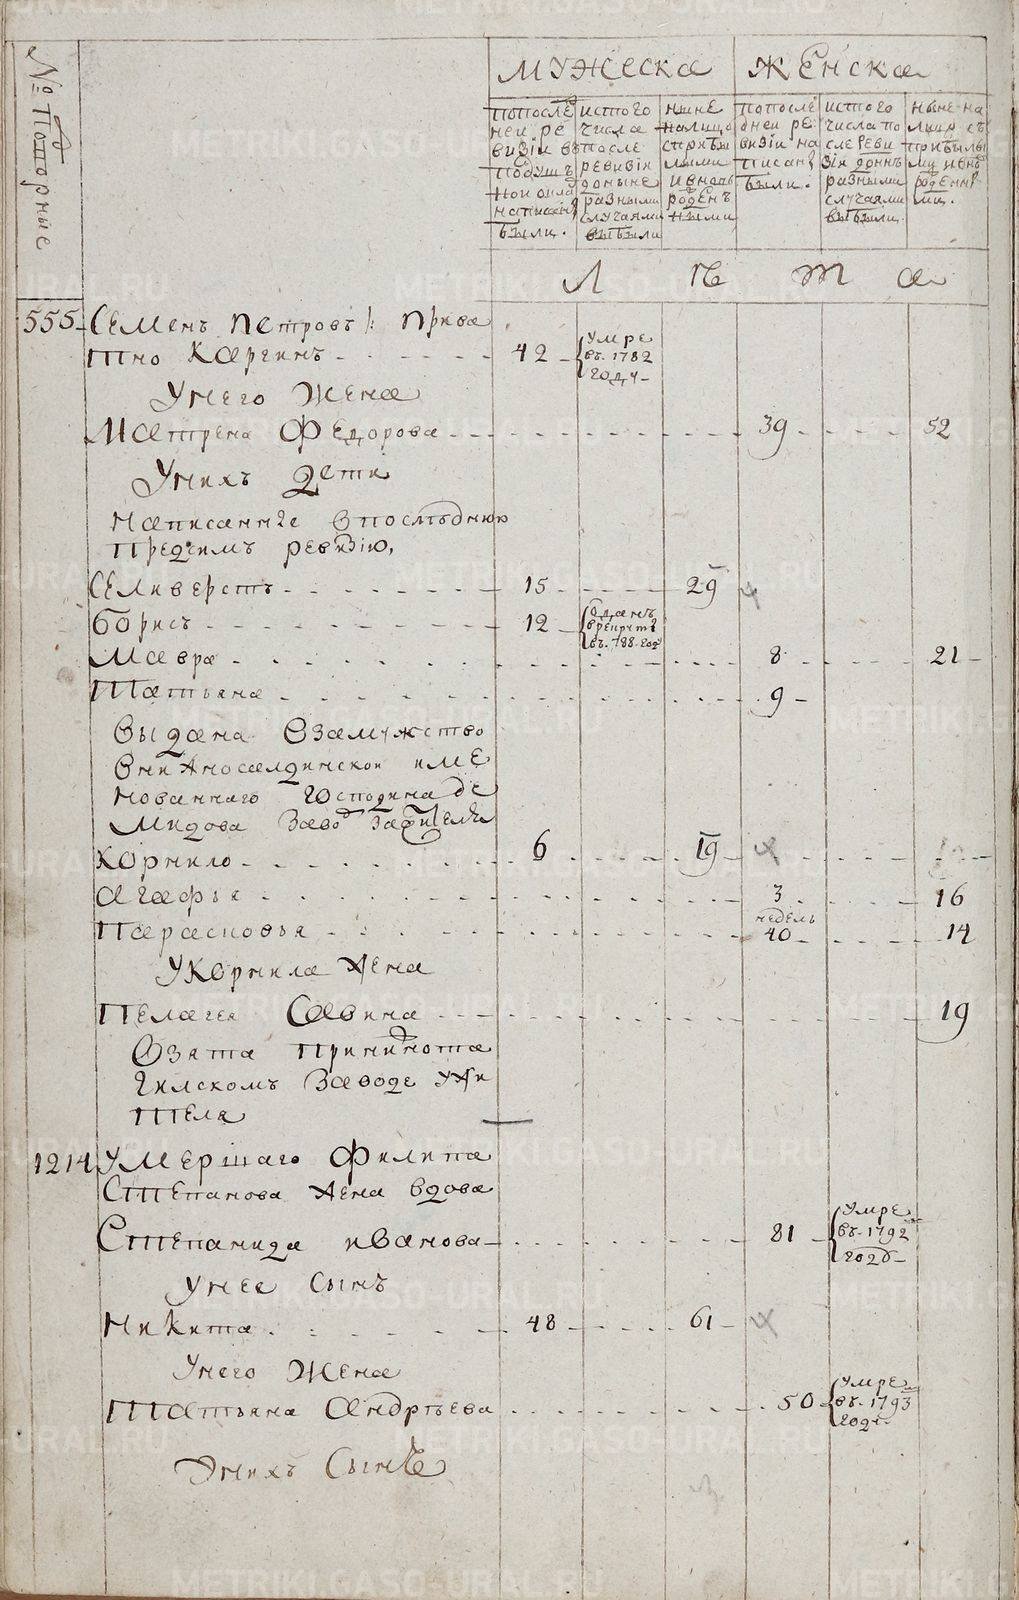 № Подворные
МУЖЕСКА ЖЕНСКА
попослѣ
ней ре
визіи в
подуш
ной окла
написан
были.
истого
числа
после
ревизіи
доныне
разными
случаями
выбыли
ныне
налицо
сприбы
лыми
ивновь
рожден
ными
попослѣ
дней ре
визіи на
писан
были.
истого
числа по
сле реви
зіи доннѣ
разными
случаями
выбыли.
ныне на
лицо съ
прибылы
ми
рожденн
ми.
Л ѣ т а
555 Семенъ Петровъ /: прива
тно Каргинъ 42 умре
въ 1782
году
Унего Жена
Матрена Федорова 39 52
Унихъ дети
написанные впоследнюю
предсимъ ревизію,
Селиверстъ 15 29
Борисъ 12 Отданъ
врекруты
въ 788 году
Мавра 8 21
Татьяна 9
Выдана Взамужство
име
нованнаго Господина Де
мидова Завод
Корнило 6 19
Агафья 3 16
Парасковья недель
40 14
УКорнила Жена
Пелагея Савина 19
Взята принижнота
гилскомъ Заводе ужи
теля
1214 Умершаго Филипа
Степанова Жена вдова
Степанида иванова 81 умре
въ 1792
годѣ
Унее Сынъ
Никита 48 61
Унего Жена
Татьяна Андрѣева 50 умре
въ 1793
годе
Унихъ Сынъ
METRIKI.GASO-URAL.RU